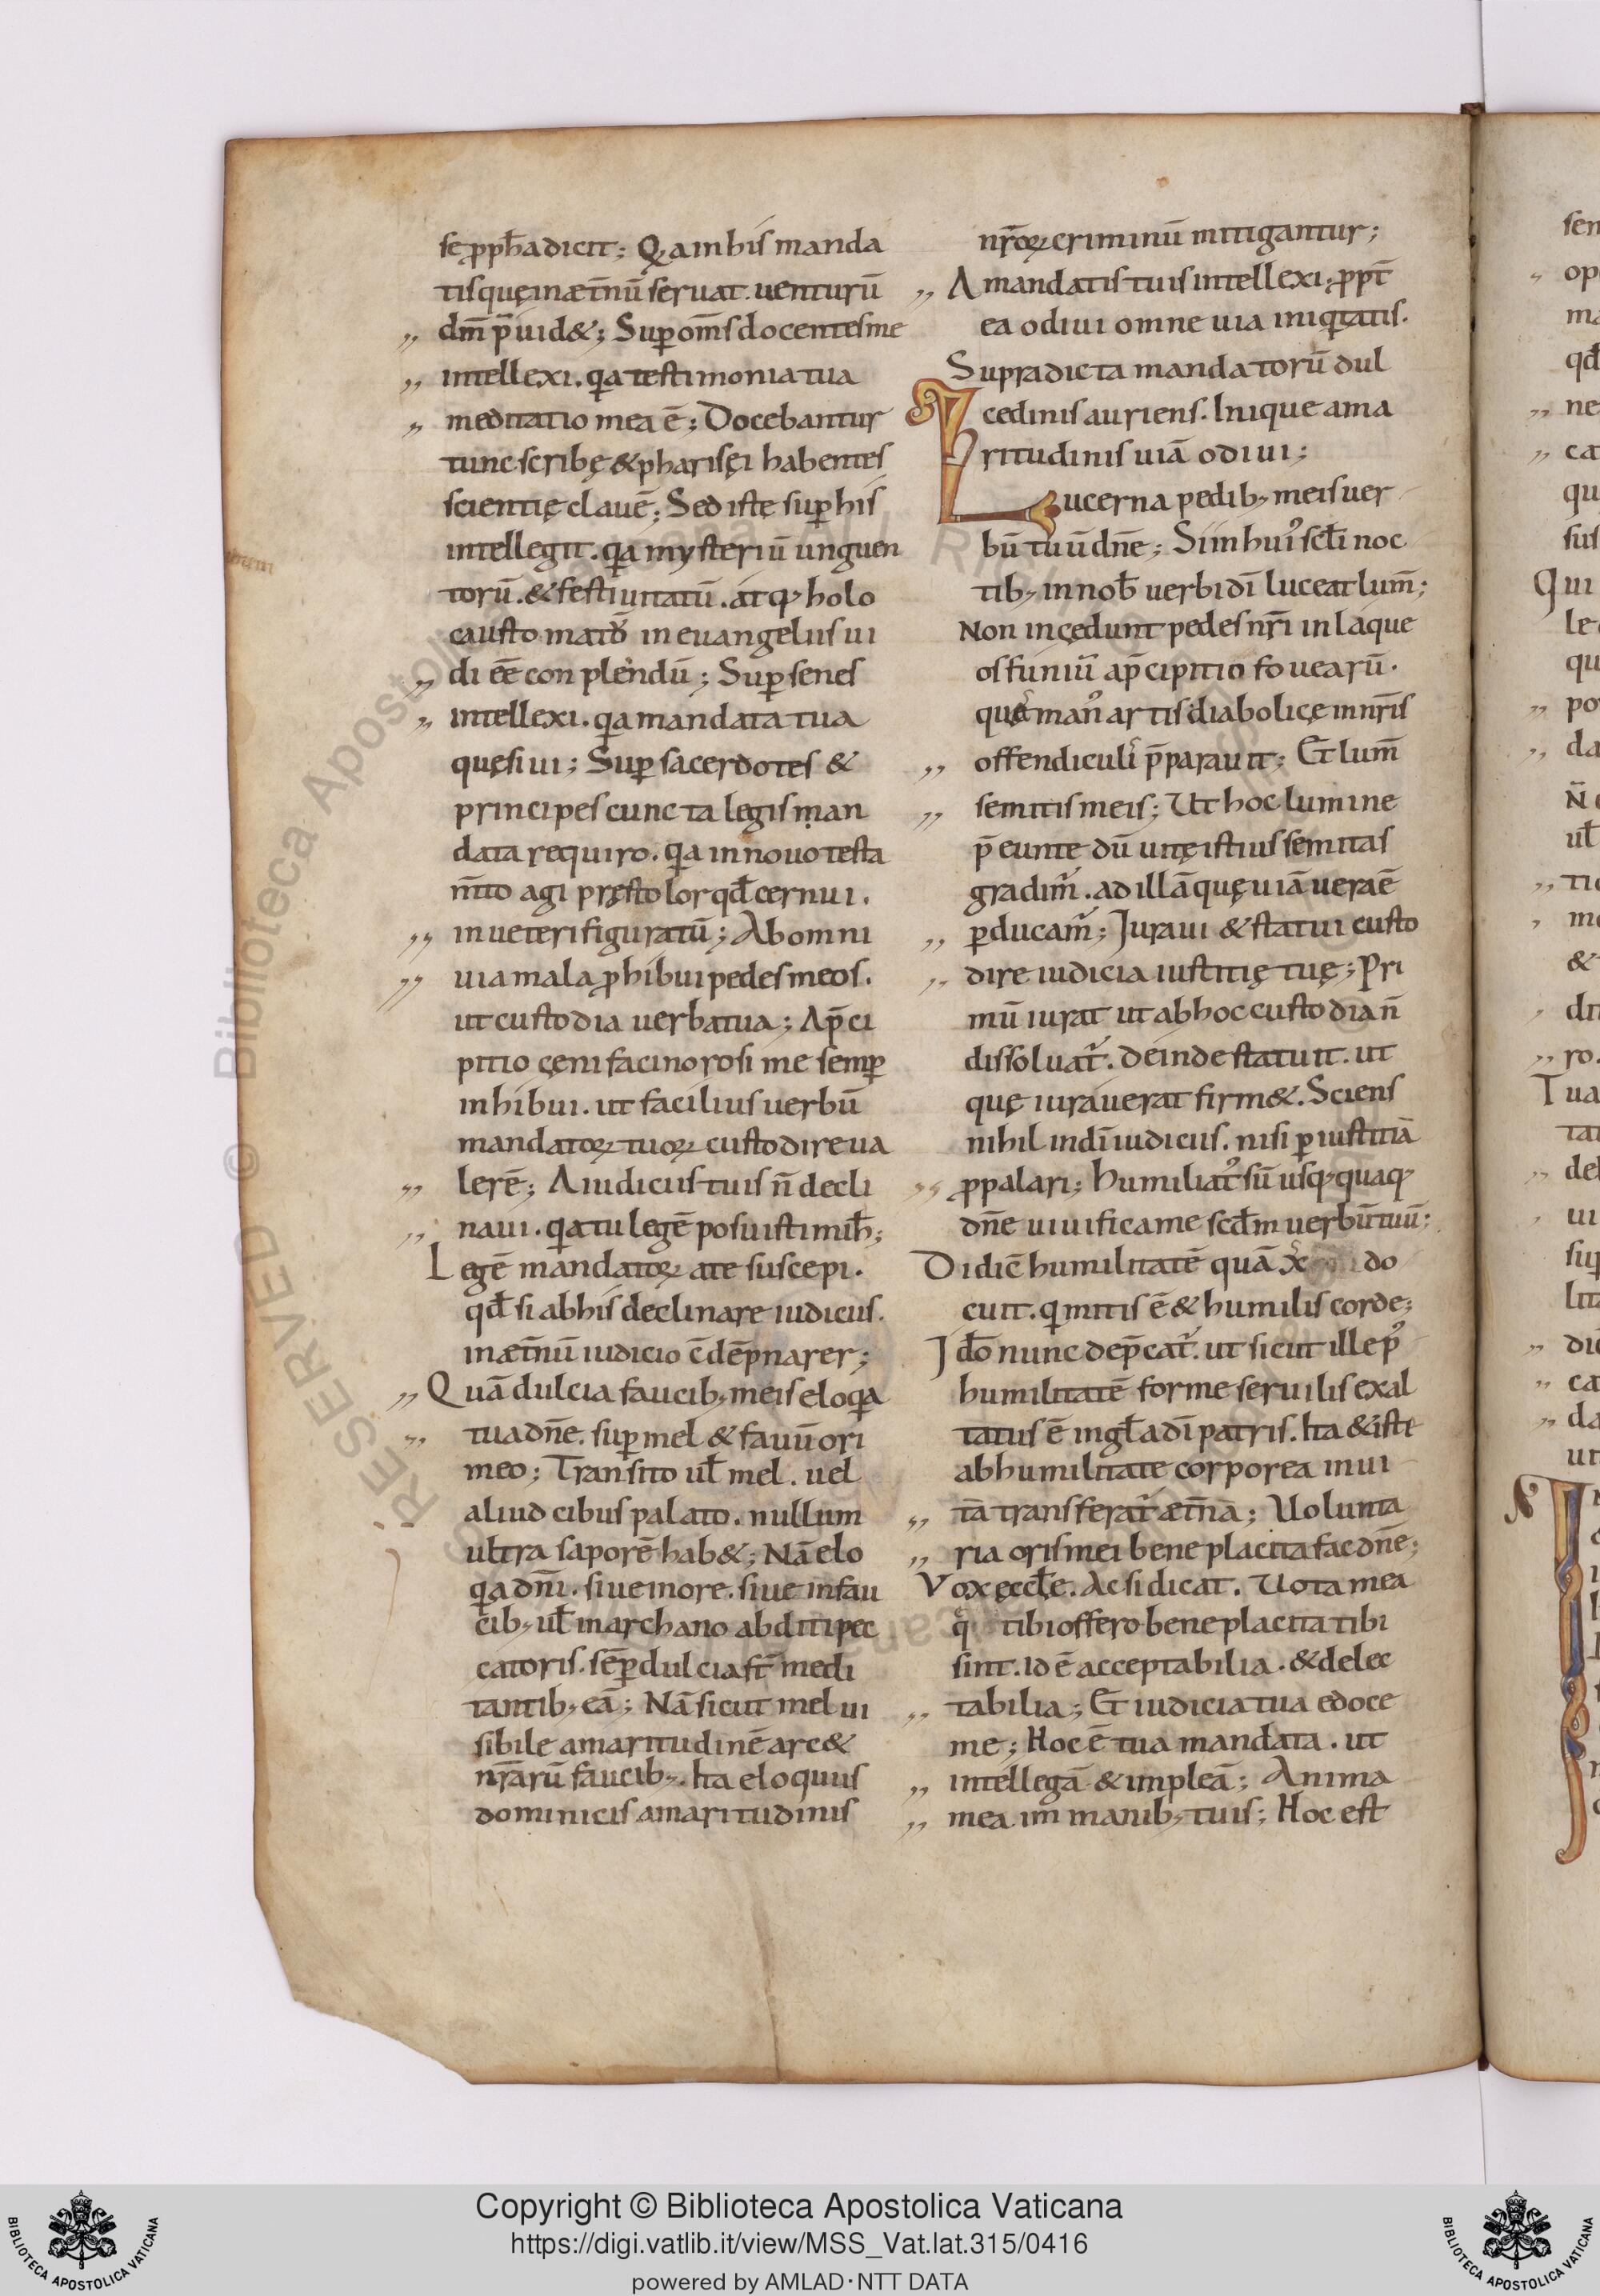 se ꝓph̄a dicit; Qꝫa in his manda
tis quę in æt̄nū seruat. uenturū
dm̄ p̄uid&; Suꝑ om̄s docentes me
intellexi. qa testimonia tua
meditatio mea ē; Docebantur
tunc scribę & pharisęi habentes
scientię clauē; Sed iste suꝑ his
intellegit. qa mysteriū unguen
torū. & festiuitatū. atq; holo
causto
in euangeliis ui
di eē conplendū; Suꝑ senes
intellexi. qa mandata tua
quęsiui; Suꝑ sacerdotes &
principes cuncta legis man
data requiro. qa in nouo testa
m̄to agi pręstolor qđ cernui.
in ueteri figuratū; Ab omni
uia mala ꝓhibui pedes meos.
ut custodia uerba tua; A p̄ci
pitio çeni facinorosi me semꝑ
inhibui. ut facilius uerbū
mandatoꝝ tuoꝝ custodire ua
lerē; A iudiciis tuis n̄ decli
naui. qa tu legē posuisti mih̄;
Legē mandatoꝝ a te suscepi.
qđ si ab his declinare iudiciis.
in æt̄nū iudicio c̄dēpnarer;
Quā dulcia faucib; meis eloqa
tua dn̄e. suꝑ mel & fauū ori
meo; Transito ul̄ mel. uel
aliud cibus palato. nullum
ultra saporē hab&; Nā elo
qa dn̄i. siue in ore. siue in fau
cib; ul̄ in archano abditi pec
catoris. sēꝑ dulcia st̄ medi
tantib; eā; Nā sicut mel ui
sibile amaritudinē arc&
nr̄arū faucib;. Ita eloquiis
dominicis amaritudinis
nr̄oꝝ criminū mitigantur;
A mandatis tuis intellexi. ꝓpt̄
ea odiui omne uia iniqtatis.
Supradicta mandatorū dul
cedinis auriens. Inique ama
ritudinis uiā odiui;
Lucerna pedib; meis uer
bū tuū dn̄e; Si in hui᾿ scl̄i noc
tib; in nob̄ uerbi dī luceat lum̄;
Non incędunt pedes nr̄i in laque
os funiū a p̄cipitio fouearū.
quę man᾿ artis diabolicę in nr̄is
offendiculi p̄parauit; Et lum̄
semitis meis; Ut hoc lumine
p̄eunte dū uitę istius semitas
gradim᾿. ad illā quę uiā uera ē
ꝑducam᾿; Iuraui & statui custo
dire iudicia iustitię tuę; Pri
mū iurat ut ab hoc custodia n̄
dissoluat᾿. deinde statuit. ut
quę iurauerat firm&. Sciens
nihil in dī iudiciis. nisi ꝑ iustitiā
ꝓpalari; Humiliat᾿ sū usq; quaq;
dn̄e uiuifica me scđm uerbū tuū;
Didic̄ humilitatē quā xc̄ do
cuit. q mitis ē & humilis corde;
Idō nunc dep̄cat᾿. ut sicut ille p᾿
humilitatē forme seruilis exal
tatus ē in gl̄a dī patris. Ita & iste
ab humilitate corporea in ui
tā transferat᾿ æt̄nā; Uolunta
ria oris mei bene placita fac dn̄e;
Vox ęccl̄e. Ac si dicat. Uota mea
q tibi offero bene placita tibi
sint. Id ē acceptabilia. & delec
tabilia; Et iudicia tua edoce
me; Hoc ē tua mandata. ut
intellegā & impleā; Anima
mea im manib; tuis; Hoc est
Copyright © Biblioteca Apostolica Vaticana
https://digi.vatlib.it/view/MSS_Vat.lat.315/0416
powered by AMLAD·NTT DATA
BIBLIOTECA APOSTOLICA VATICANA
BIBLIOTECA APOSTOLICA VATICANA